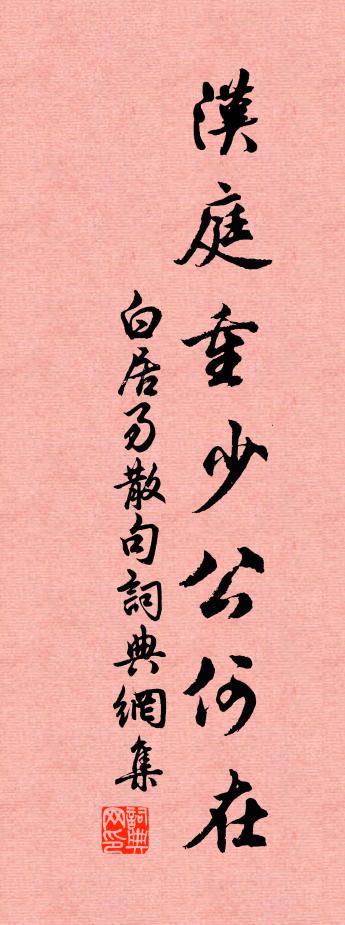 漢庭重少公何在
白居易散句詞典網集
詞典网印